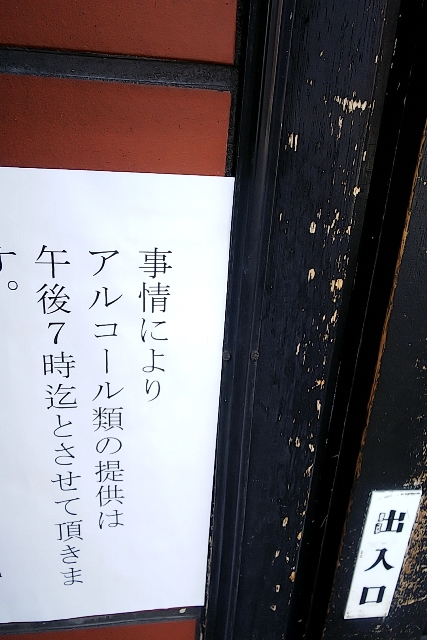 事情により
アルコール類の提供は
午後7時迄とさせて頂きま
す。
出入口